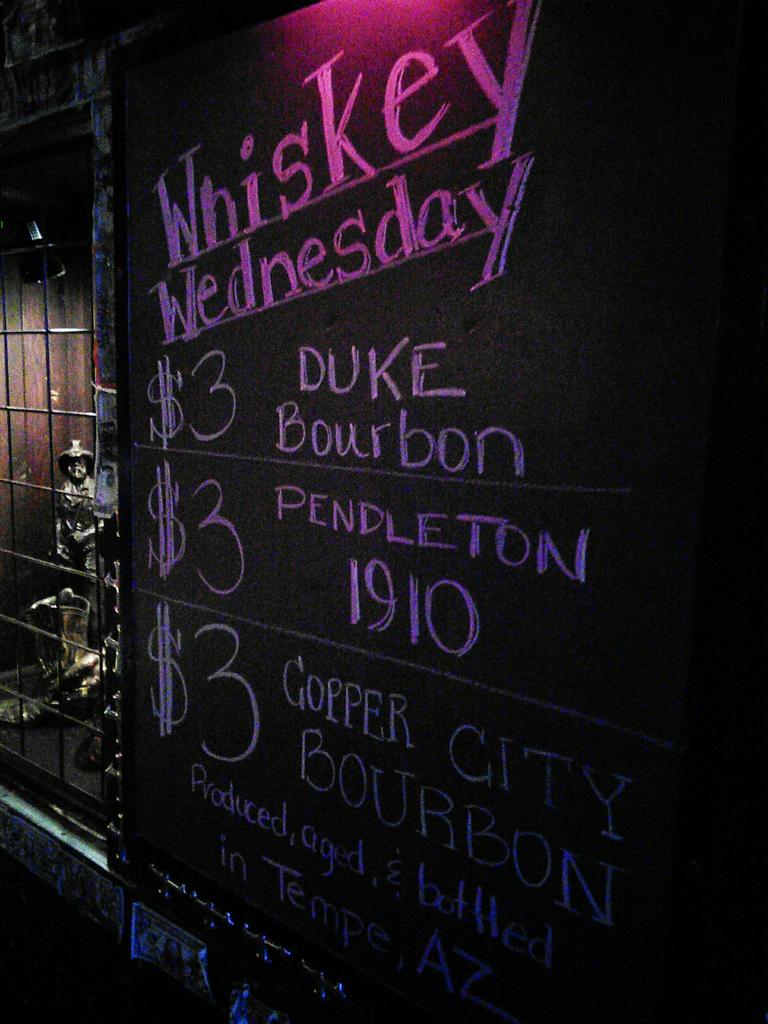 Whiskey
Wednesday
$3 DUKE
Bourbon
$3 PENDLETON
1910
$3 COPPER CITY
BOURBON
Produced, aged, & bottled
in Tempe, AZ